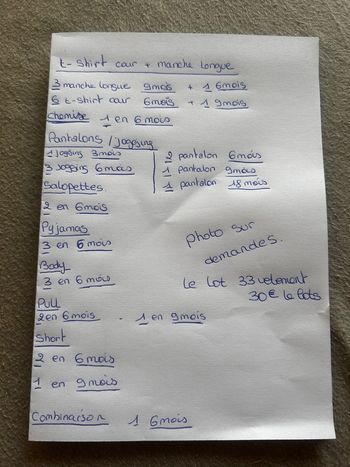 t-shirt cour + manche longue
3 manche longue 9mois + 1 6mois
6 t-shirt cour 6mois + 1 9mois
chemise 1 en 6 mois
Pantalons / jogging
1 jogging 3mois
3 Jogging 6 mois
2 pantalon 6mois
1 pantalon 9mois
1 pantalon 18 mois
Salopettes
2 en 6mois
Pyjamas
3 en 6 mois
Body
3 en 6 mois
photo sur
demandes.
Le lot 33 vetement
30€ le lots
Pull
2 en 6 mois - 1 en 9mois
Short
2 en 6mois
1 en 9 mois
Combinaison 1 6mois